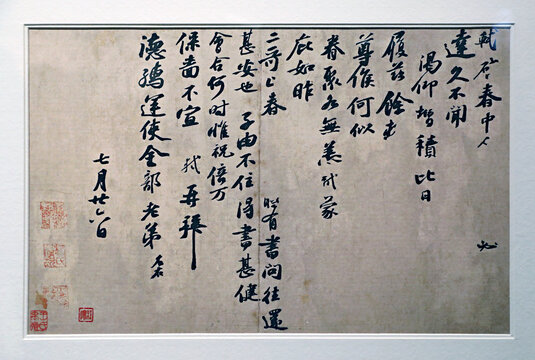 軾啓春中 必
達久不聞
渴仰增積比日
履茲餘
尊候何似
眷聚各無恙軾蒙
庇如昨
二哥上春 時有書問往還
甚安也 子由不住得書甚健
會合何時惟祝倍萬
保嗇不宣 軾再拜
德孺運使金部老弟 左右
七月廿六日